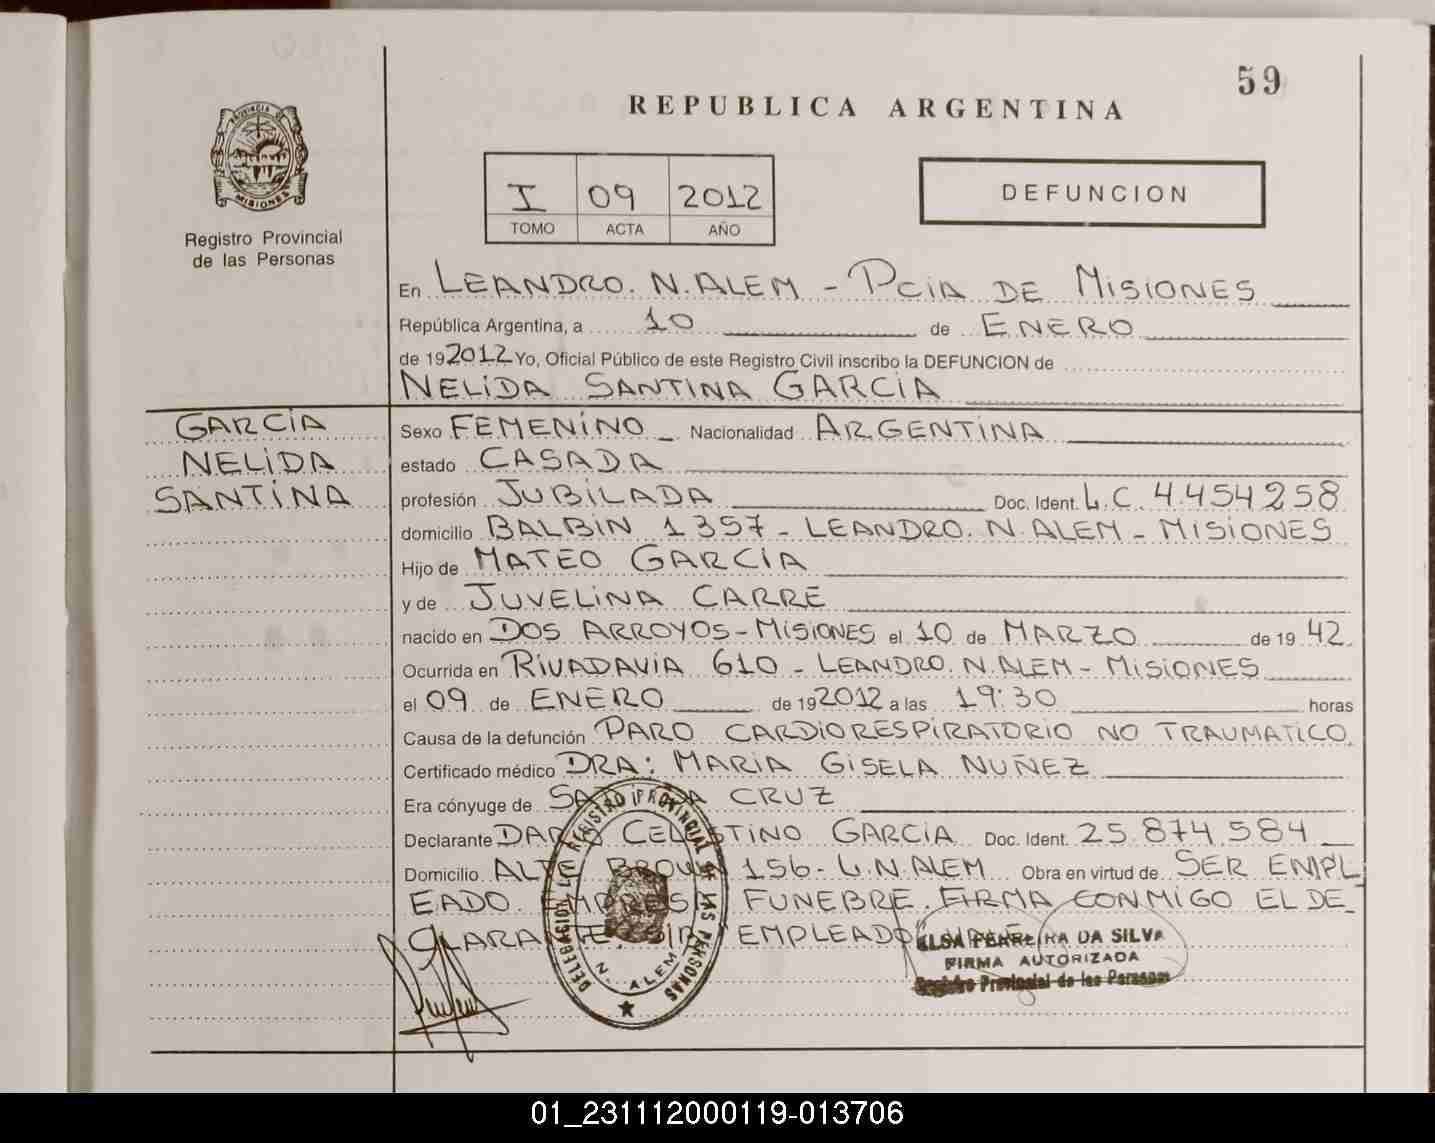 59
REPUBLICA ARGENTINA
PROVINCIA DE
MISIONES
Registro Provincial
de las Personas
I 09 2012
TOMO ACTA AÑO
DEFUNCION
En LEANDRO. N. ALEM - PCIA DE MISIONES
República Argentina, a 10 de ENERO
de 192012 Yo, Oficial Público de este Registro Civil inscribo la DEFUNCION de
NELIDA SANTINA GARCIA
GARCIA
NELIDA
SANTINA
Sexo FEMENINO _ Nacionalidad ARGENTINA
estado CASADA
profesión JUBILADA Doc. Ident. L.C. 4.454258
domicilio BALBIN 1357 - LEANDRO. N. ALEM - MISIONES
Hijo de MATEO GARCIA
y de JUVELINA CARRE
nacido en DOS ARROYOS - MISIONES el 10 de MARZO de 19 42
Ocurrida en RIVADAVIA 610 - LEANDRO. N. ALEM - MISIONES
el 09 de ENERO de 192012 a las 19:30 horas
Causa de la defunción PARO CARDIORESPIRATORIO NO TRAUMATICO
Certificado médico DRA: MARIA GISELA NUÑEZ
Era cónyuge de CRUZ
Declarante GARCIA Doc. Ident. 25.874.584
Domicilio BROWN 156 - L.N. ALEM Obra en virtud de SER EMPL
EADO. EMPRESA FUNEBRE. FIRMA CONMIGO EL DE_
CLARANTE EMPLEADO
DELEGACION REGISTRO PROVINCIAL DE LAS PERSONAS
N. ALEM
ELSA FERREIRA DA SILVA
FIRMA AUTORIZADA
Registro Provincial de las Personas
01_231112000119-013706